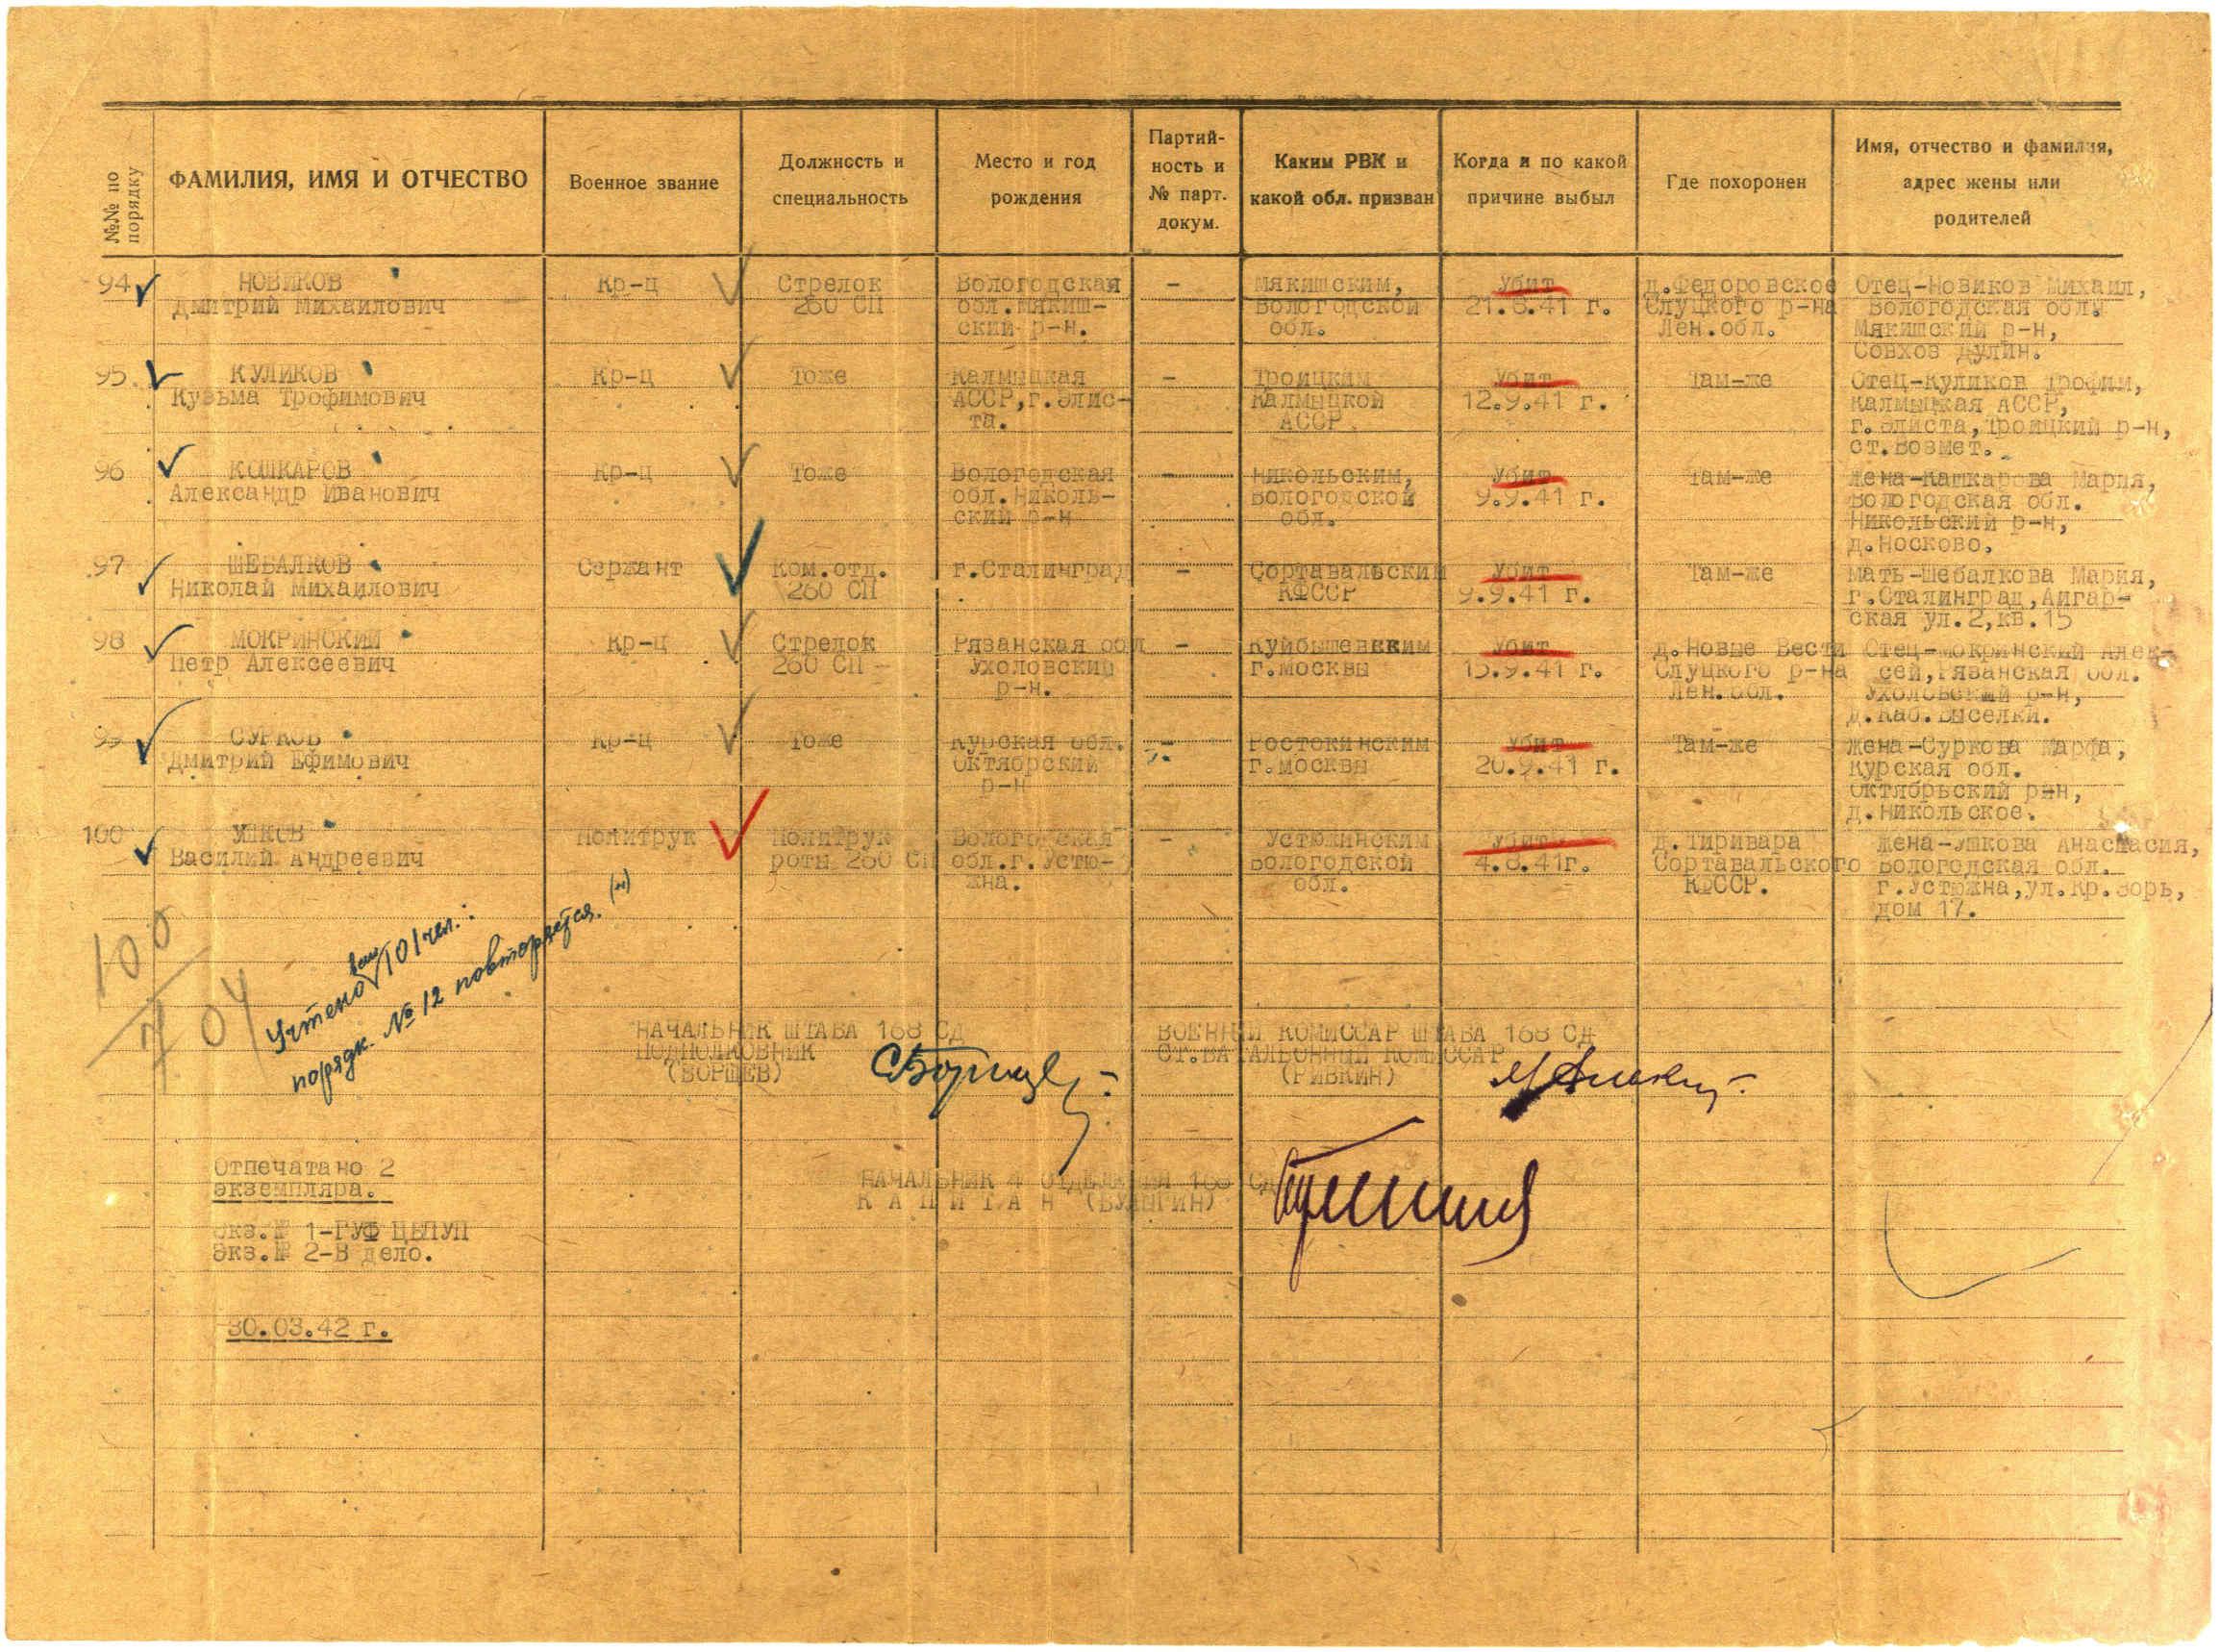 №№ по порядку
ФАМИЛИЯ, ИМЯ И ОТЧЕСТВО
Военное звание
Должность и
специальность
Место и год
рождения
Партий-
ность и
№ парт.
докум.
Каким РВК и
какой обл. призван
Когда и по какой
причине выбыл
Где похоронен
Имя, отчество и фамилия,
адрес жены или
родителей
94
НОВИКОВ
Дмитрий Михайлович
Кр-ц
Стрелок
260 СП
Вологодская
обл. Мякиш-
ский р-н.
-
Мякишским,
Вологодской
обл.
Убит
21.8.41 г.
д.Федоровское
Слуцкого р-на
Лен.обл.
Отец-Новиков Михаил,
Вологодская обл.
Мякишский р-н,
Совхоз Дулин.
95.
КУЛИКОВ
Кузьма Трофимович
Кр-ц
Тоже
Калмыцкая
АССР,г.Элис-
та.
-
Троицким
Калмыцкой
АССР
Убит
12.9.41 г.
Там-же
Отец-Куликов Трофим,
Калмыцкая АССР,
г.Элиста,Троицкий р-н,
ст.Возмет.
96
КОШКАРОВ
Александр Иванович
Кр-ц
Тоже
Вологодская
обл.Николь-
ский р-н
-
Никольским,
Вологодской
обл.
Убит
9.9.41 г.
Там-же
Жена-Кашкарова Мария,
Вологодская обл.
Никольский р-н,
д.Носково.
97
ШЕБАЛКОВ
Николай Михайлович
Сержант
Ком.отд.
260 СП
г.Сталинград
-
Сортавальским
КФССР
Убит
9.9.41 г.
Там-же
Мать-Шебалкова Мария,
г.Сталинград,Ангар-
ская ул.2,кв.15
98
МОКРИНСКИЙ
Петр Алексеевич
Кр-ц
Стрелок
260 СП
Рязанская обл
Ухоловский
р-н.
-
Куйбышевским
г.Москвы
Убит
15.9.41 г.
д.Новые Вести
Слуцкого р-на
Лен.обл.
Отец-Мокринский Алек-
сей,Рязанская обл.
Ухоловский р-н,
д.Каб.Выселки.
99
СУРКОВ
Дмитрий Ефимович
Кр-ц
Тоже
Курская обл.
Октябрский
р-н
-
Ростокинским
г.Москвы
Убит
20.9.41 г.
Там-же
Жена-Суркова Марфа,
Курская обл.
Октябрьский р-н,
д.Никольское.
100
УШКОВ
Василий Андреевич
Политрук
Политрук
роты 260 СП
Вологодская
обл.г.Устю-
жна.
-
Устюжинским
Вологодской
обл.
Убит
4.8.41г.
д.Тиривара
Сортавальского
КФССР.
Жена-Ушкова Анастасия,
Вологодская обл.
г.Устюжна,ул.Кр.Зорь,
дом 17.
100
704
Учтено 101 чел.:
порядк. № 12 повторяется. (н)
НАЧАЛЬНИК ШТАБА 168 СД
ПОДПОЛКОВНИК
(БОРЩЕВ)
ВОЕННЫЙ КОМИССАР ШТАБА 168 СД
СТ.БАТАЛЬОННЫЙ КОМИССАР
(РИВКИН)
НАЧАЛЬНИК 4 ОТДЕЛЕНИЯ 168 СД
К А П И Т А Н (БУЛЫГИН)
Отпечатано 2
экземпляра.
Экз.№ 1-ГУФ ЦБПУП
Экз.№ 2-В дело.
30.03.42 г.